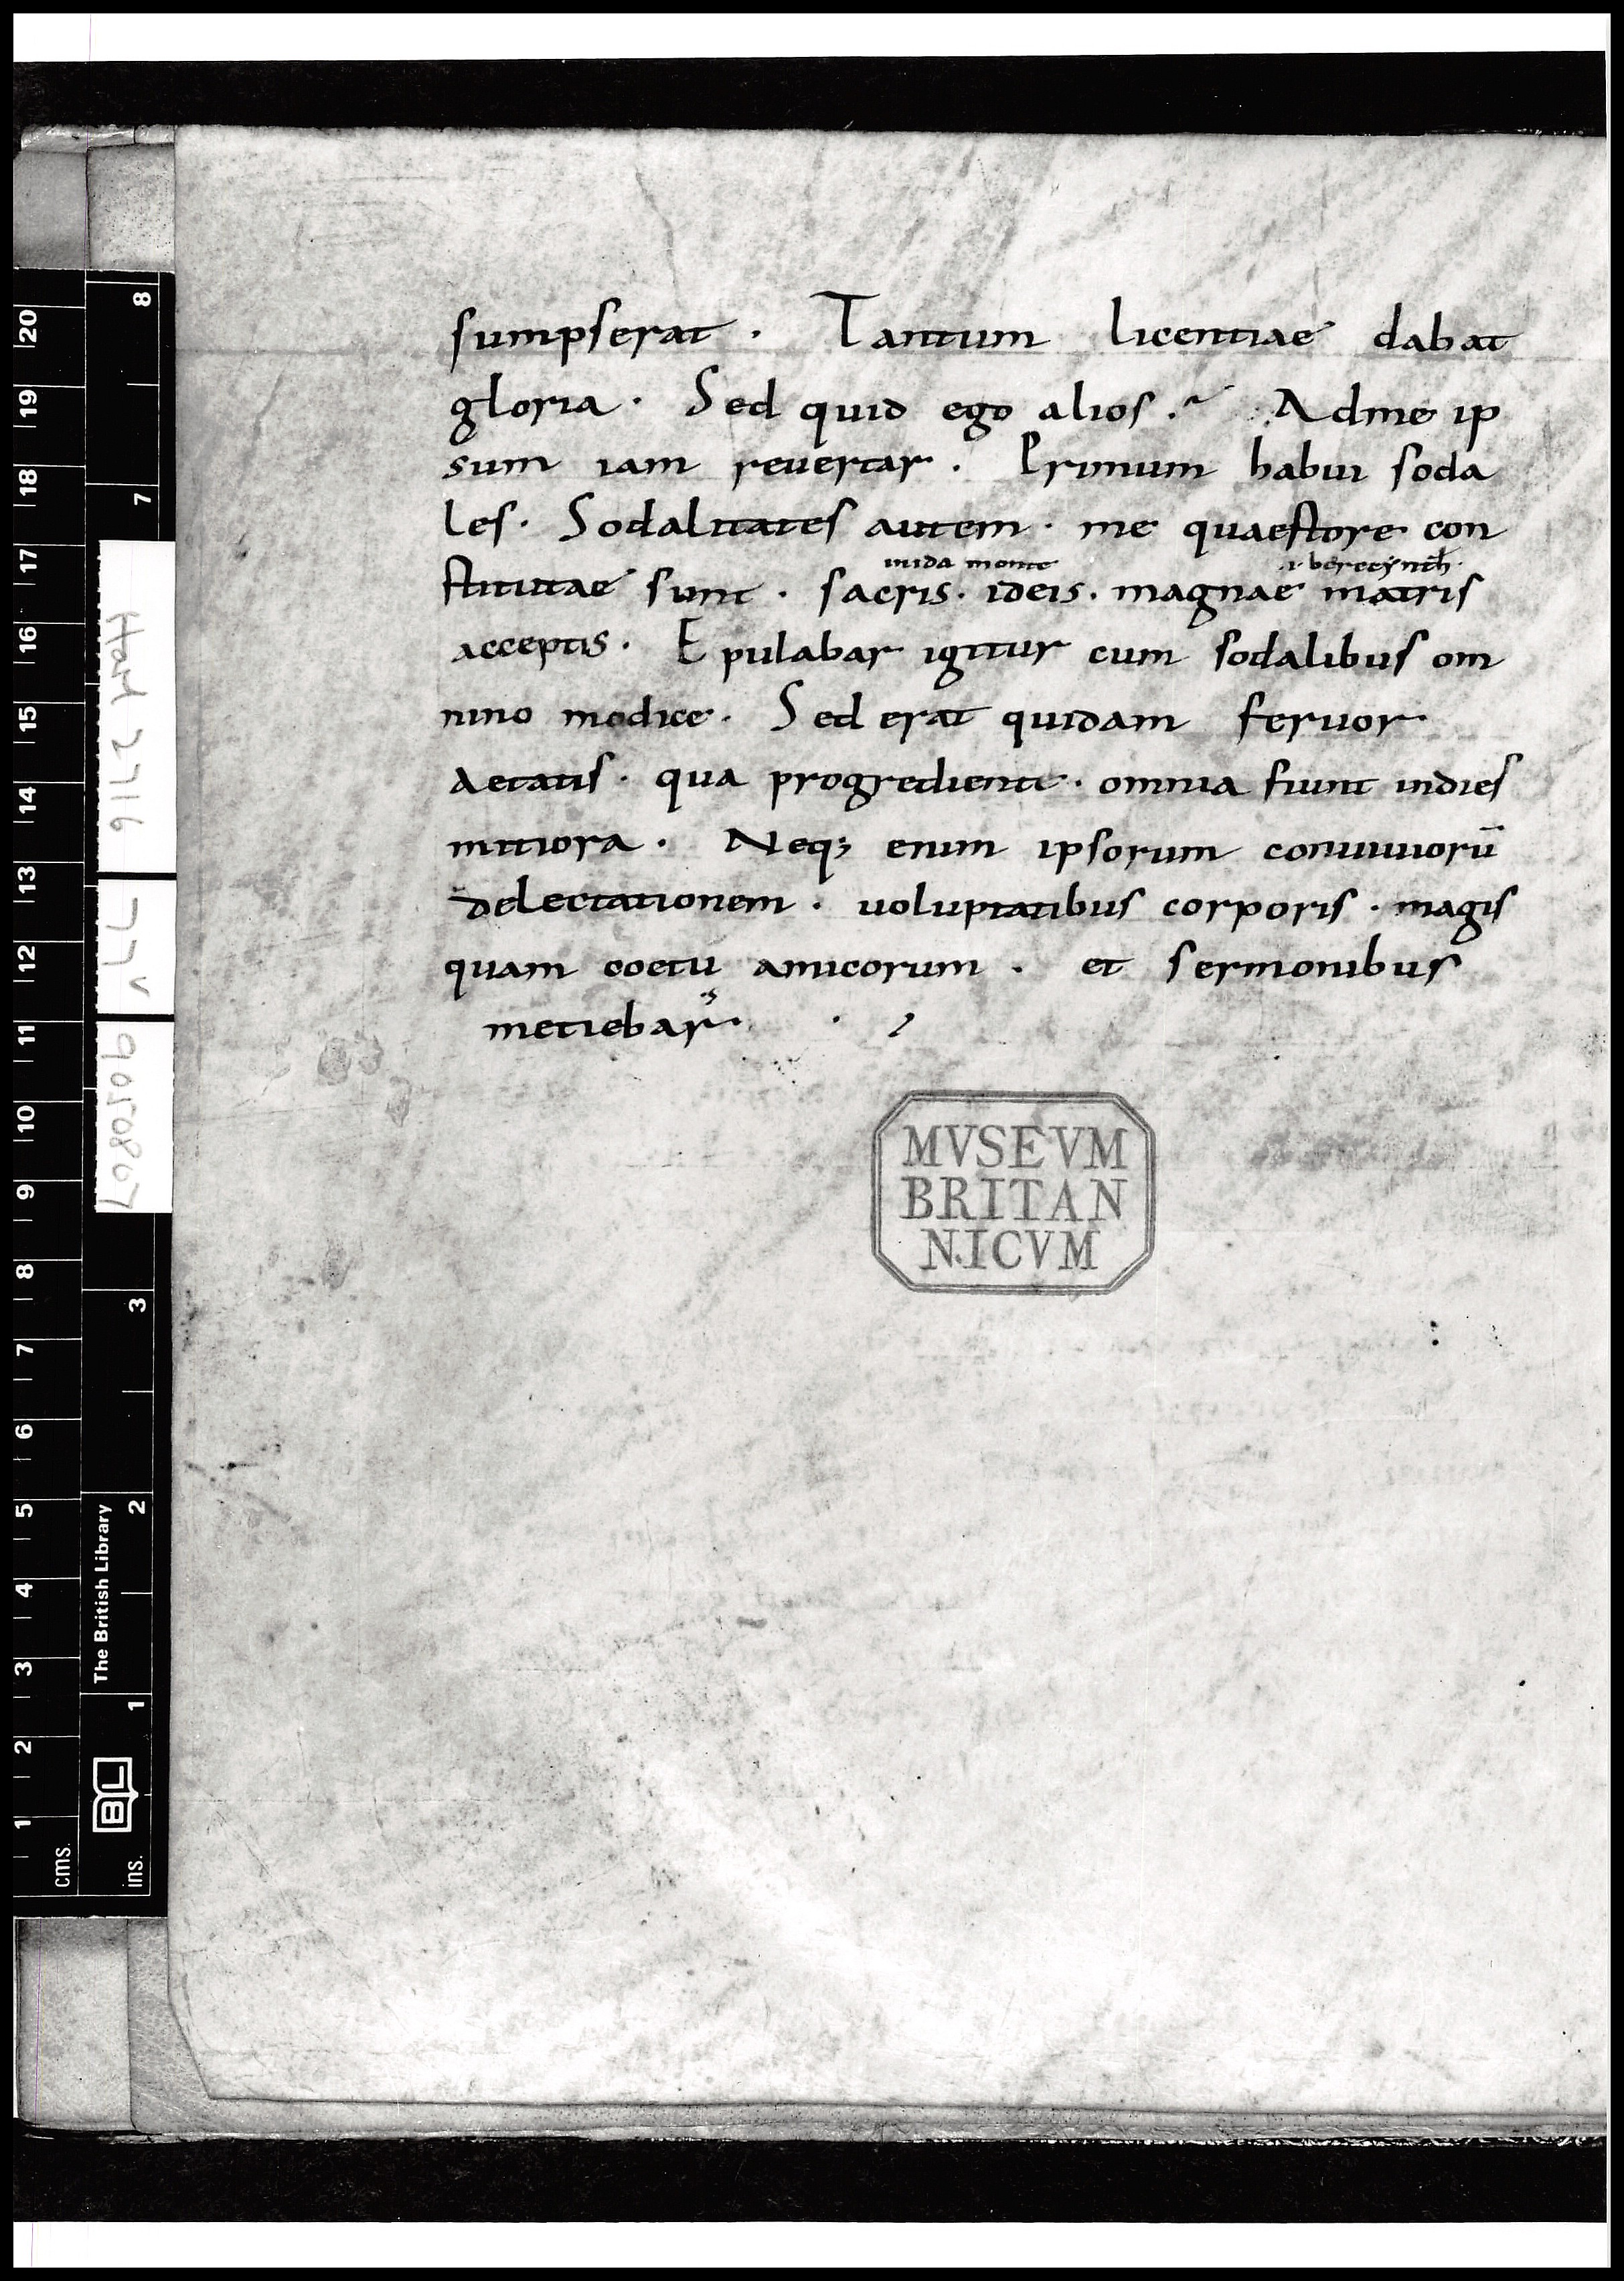 sumpserat · Tantum licentiae dabat
gloria · Sed quid ego alios ? Adme ip
sum iam reuertar . Primum habui soda
les · Sodalitates autem · me quaestore con
inida monte
.i. berecẏnth.
stitutae sunt · sacris · ideis · magnae matris
acceptis · Epulabar igitur cum sodalibus om
nino modice · Sed erat quidam feruor
aetatis · qua progrediente · omnia fiunt indies
mitiora · Neq; enim ipsorum conuiuiorū
delectationem · uoluptatibus corporis · magis
quam coetu amicorum · et sermonibus
metiebar
MVSEVM
BRITAN
NICVM
Harl 2716
77v
9050807
The British Library
BL
cms.
ins.
1 2 3 4 5 6 7 8 9 10 11 12 13 14 15 16 17 18 19 20
1 2 3 7 8